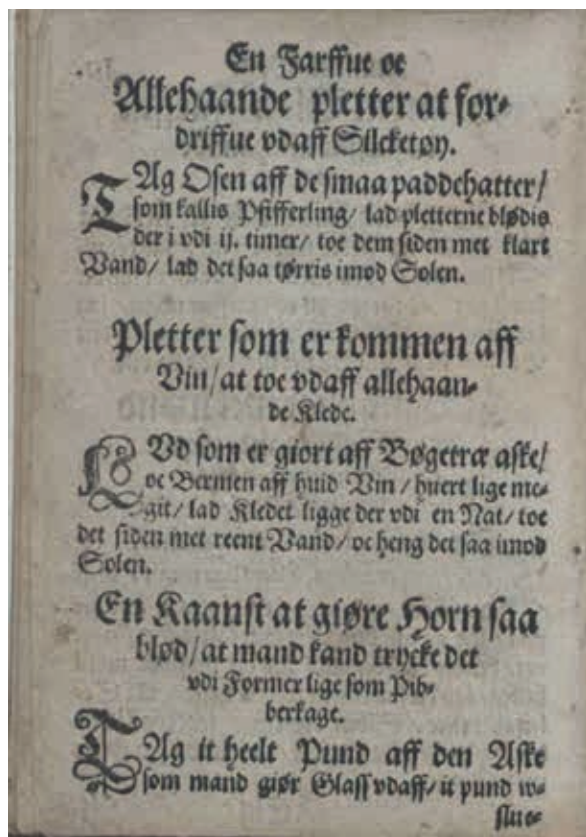 En Farffue oc
Allehaande pletter at for-
driffue vdaff Silcketøy.
TAg Osen aff de smaa paddehatter/
som kallis Pfifferling/ lad pletterne blødis
der i vdi ij. timer/ toe dem siden met klart
Vand/ lad det saa tørris imod Solen.
Pletter som er kommen aff
Vin/ at toe vdaff allehaan-
de Klede.
LVd som er giort aff Bøgetræ aske/
oc Bermen aff huid Vin/ huert lige me-
git/ lad Kledet ligge der vdi en Nat/ toe
det siden met reent Vand/ oc heng det saa imod
Solen.
En Kaanst at giøre Horn saa
blød/ at mand kand trycke det
vdi Former lige som Pib-
berkage.
TAg it heelt Pund aff den Aske
som mand giør Glass vdaff/ it pund w-
slue-